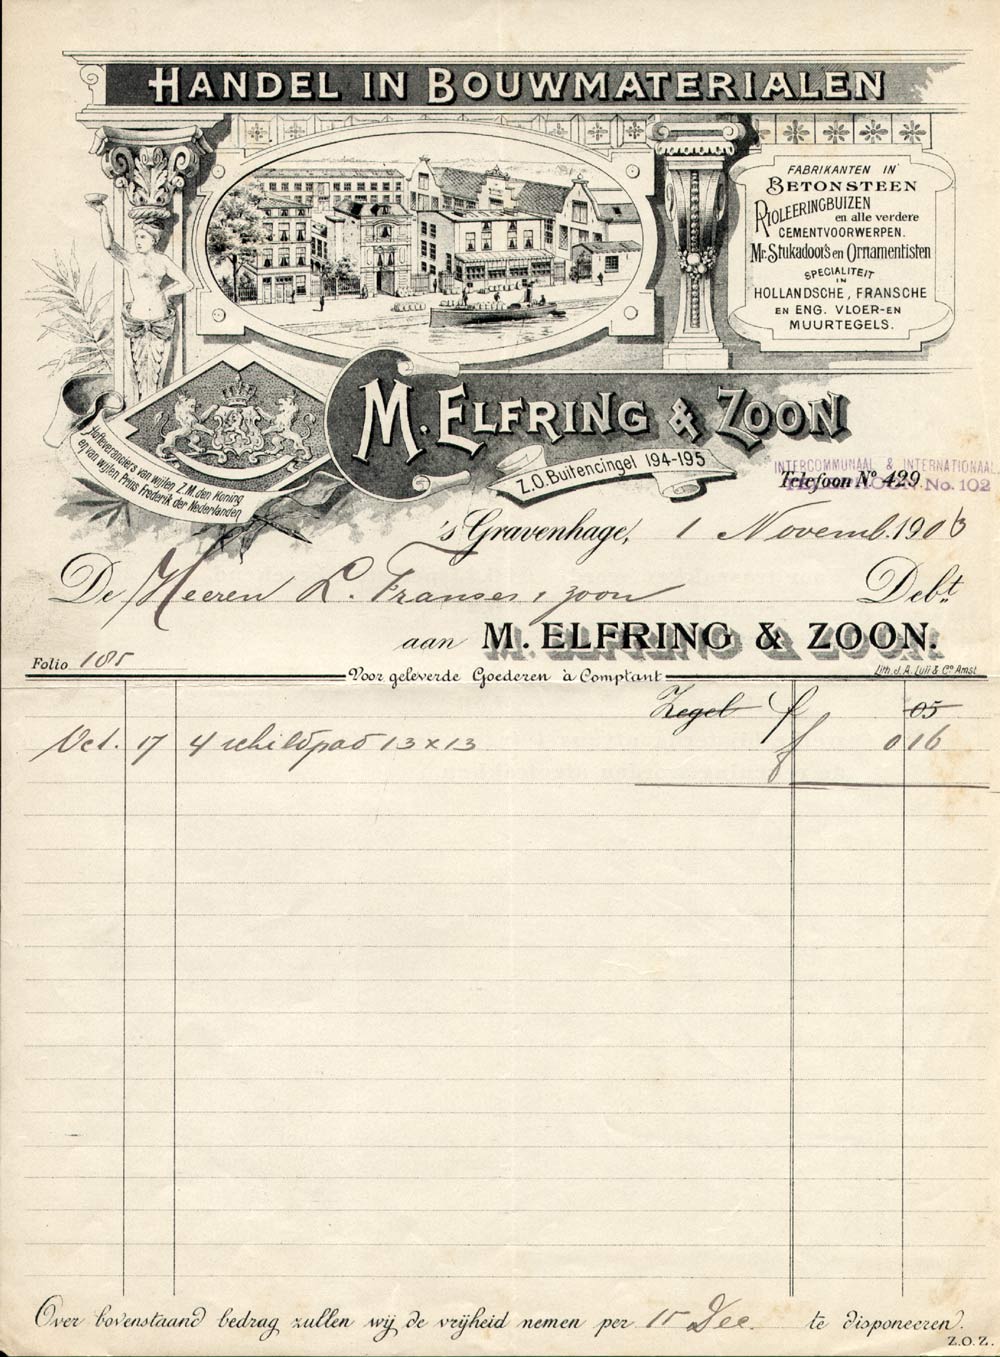 HANDEL IN BOUWMATERIALEN
FABRIKANTEN IN
BETONSTEEN
RIOLEERINGBUIZEN
en alle verdere
CEMENTVOORWERPEN.
Mr. Stukadoors en Ornamentisten
SPECIALITEIT
IN
HOLLANDSCHE, FRANSCHE
EN ENG. VLOER-EN
MUURTEGELS.
Hofleveranciers van wijlen Z.M. den Koning
en van wijlen Prins Frederik der Nederlanden
M. ELFRING & ZOON
Z.O. Buitencingel 194-195
INTERCOMMUNAAL & INTERNATIONAAL
Telefoon No. 429
No. 102
's Gravenhage, 1 Novemb. 1903
De Heeren L. Franses & zoon Debt.
aan M. ELFRING & ZOON.
Folio 185
Voor geleverde Goederen à Comptant
Lith. J. A. Luii & Co. Amst.
Zegel f 05
Oct. 17 4 schildpad 13 x 13 f 0 16
Over bovenstaand bedrag zullen wij de vrijheid nemen per 15 Dec. te disponeeren.
Z.O.Z.